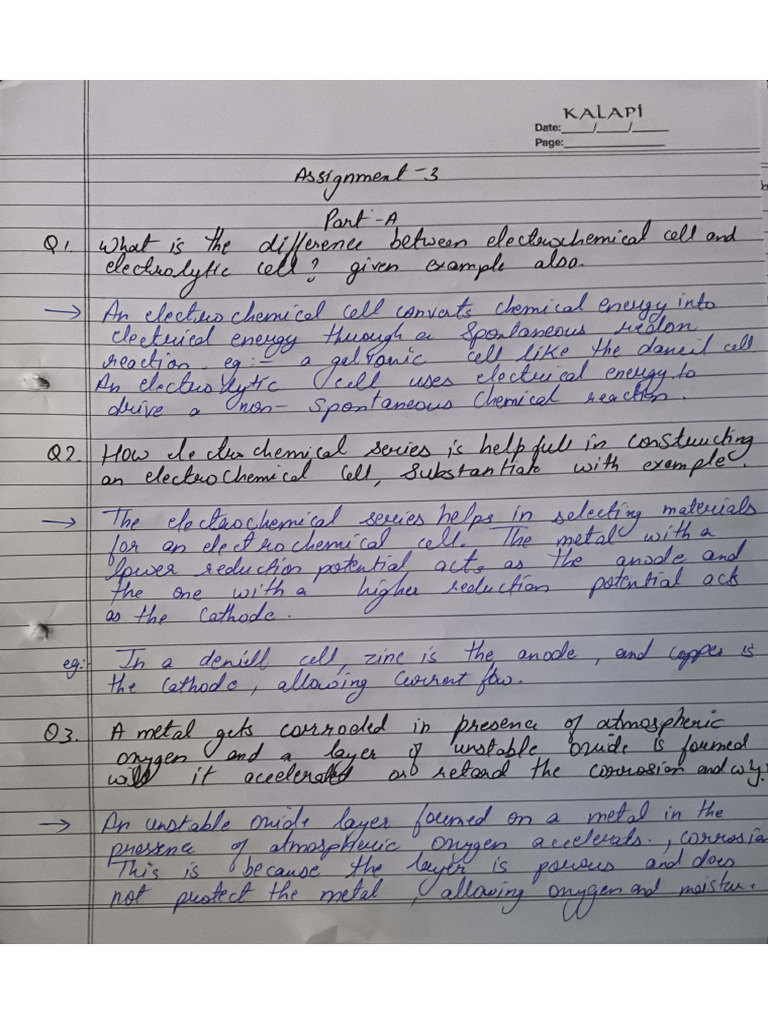 KALAPI
Date:____/____/____
Page:____________
Assignment-3
Part-A
Q1. What is the difference between electrochemical cell and
electrolytic cell? given example also.
→ An electrochemical cell converts chemical energy into
electrical energy through a spontaneous redon
reaction. eg:- a galvonic cell like the daneil cell
An electrolytic cell uses electrical energy to
drive a non-spontaneous chemical reaction.
Q2. How electrochemical series is helpfull in constructing
an electrochemical cell, substantiate with example.
→ The electrochemical series helps in selecting materials
for an electrochemical cell. The metal with a
lower reduction potential acts as the anode and
the one with a higher reduction potential act
as the cathode.
eg:- In a deniell cell, zinc is the anode, and copper is
the cathode, allowing current flow.
Q3. A metal gets corroded in presence of atmospheric
oxygen and a layer of unstable oxide is formed
will it accelerated or retard the corrosion and why?
→ An unstable oxide layer formed on a metal in the
presence of atmospheric oxygen accelerats., corrosion
This is because the layer is porous and does
not protect the metal, allowing oxygen and moistur.